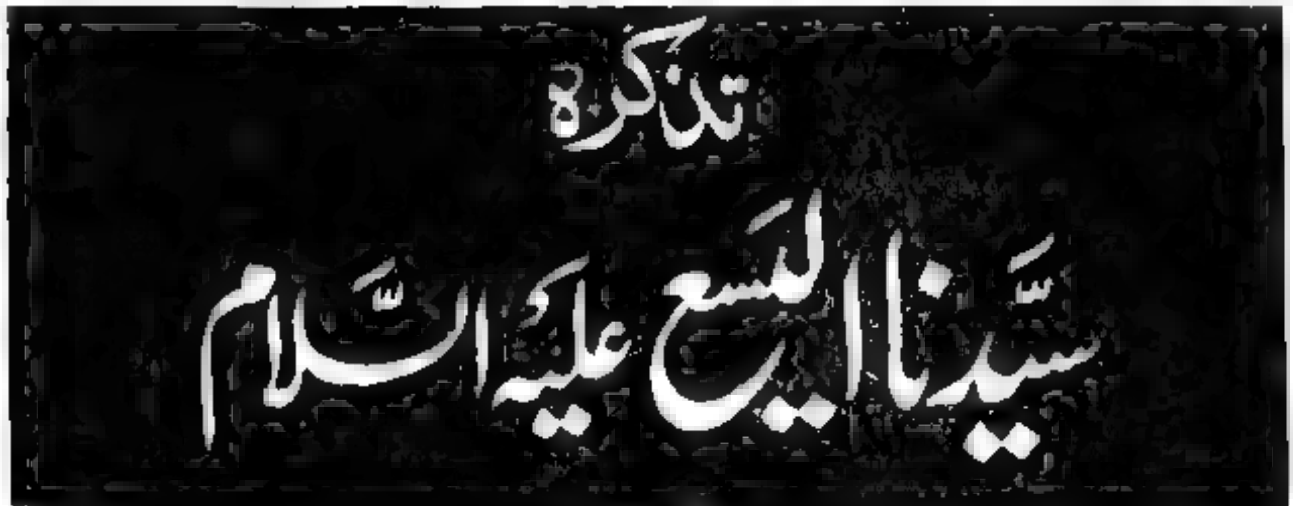 تذکرہ
سَیِّدنا الیَسع علیہ السَّلام